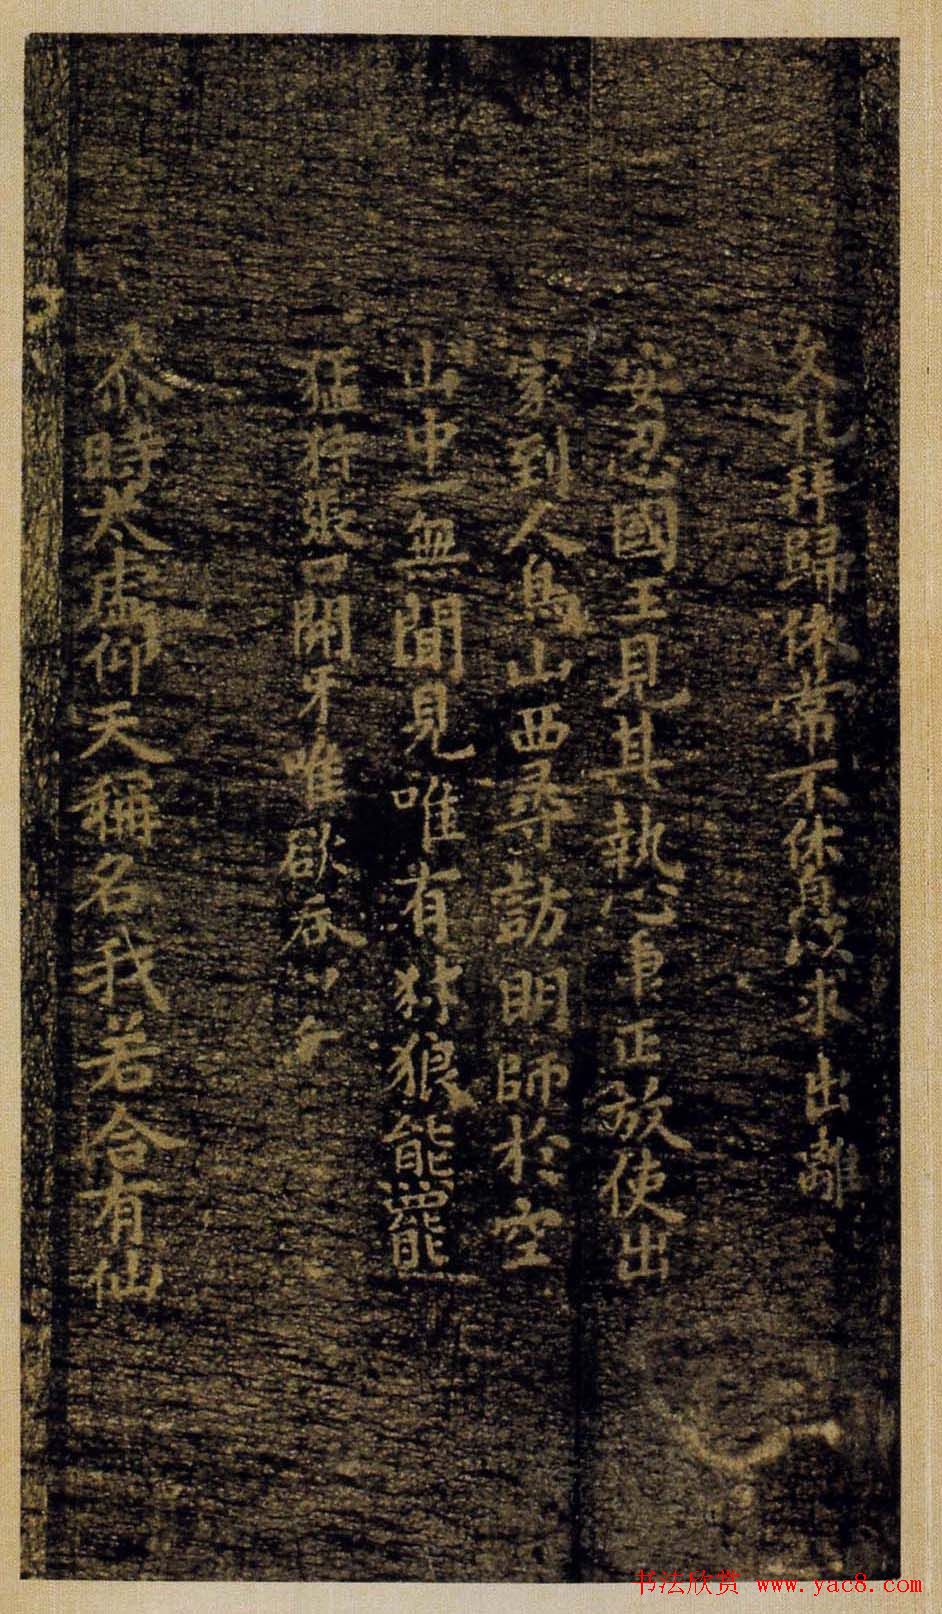 文礼拜歸依常不休自沒求出離
安忍國王見其執心秉正放使出
家到人鳥山西尋訪明師於空
山中一無聞見唯有豺狼能羆
猛狩張口開牙唯欲吞
爾時太虛仰天稱名我若合有仙
书法欣赏 www.yac8.com